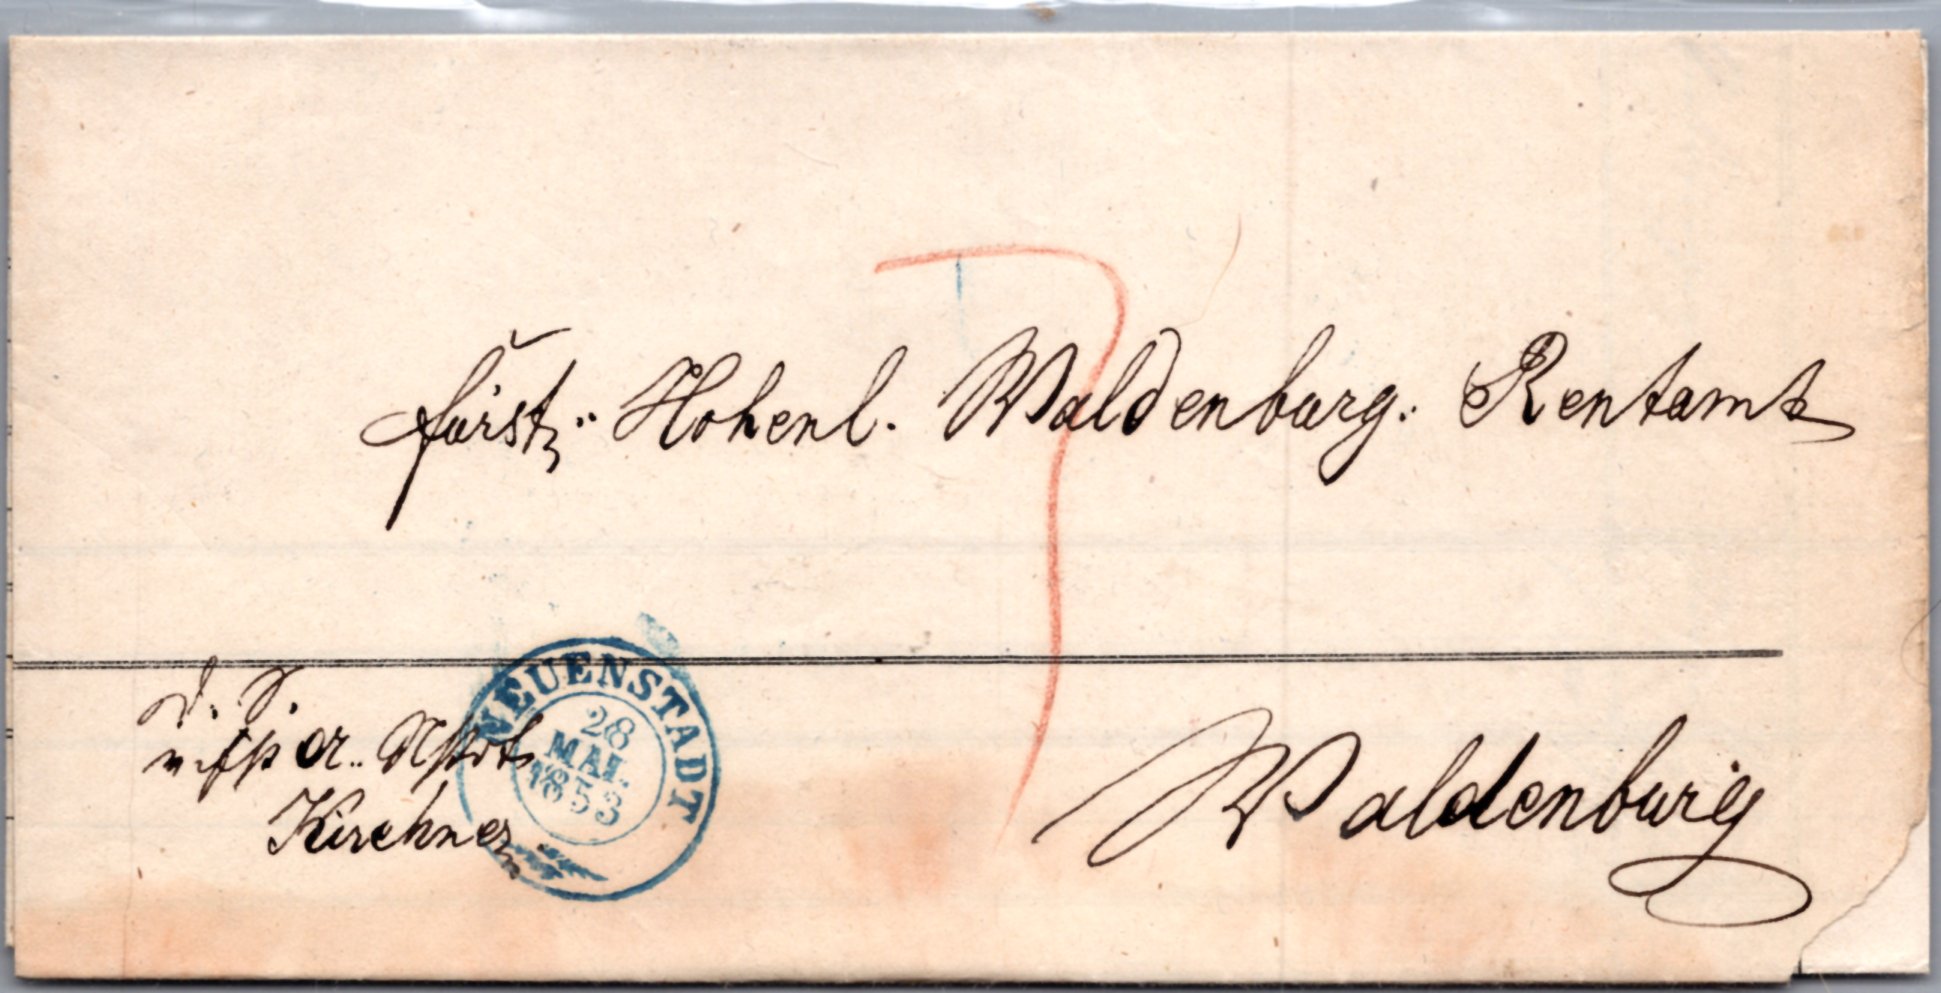 fürstl. Hohenl. Waldenburg. Rentamt
NEUENSTADT
28
MAI.
1853
Kirchner
Waldenburg